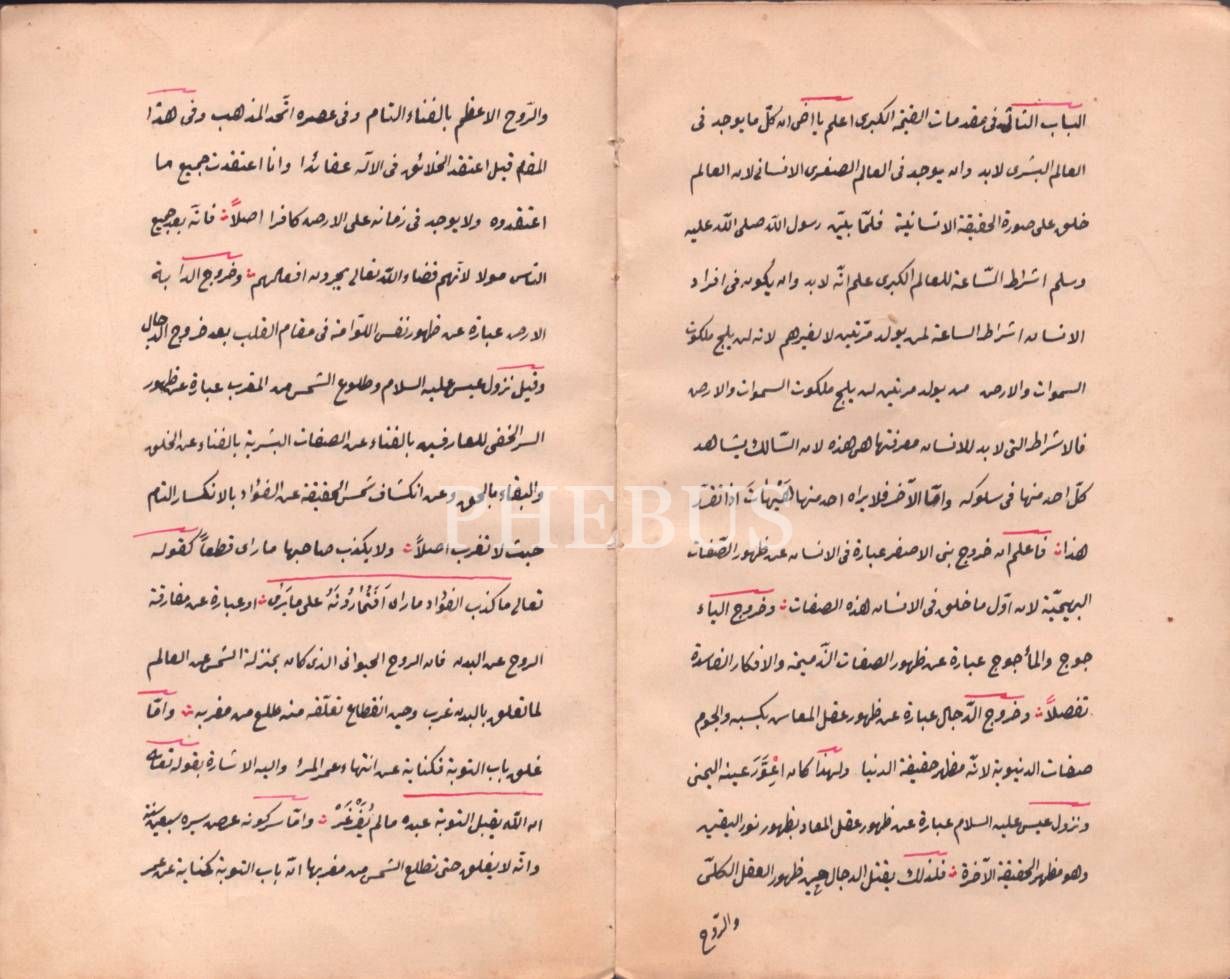 الباب الثانى فى مقدمات القيمة الكبرى اعلم يا اخى ان كلّ ما يوجد فى
العالم البشرى لابد وان يوجد فى العالم الصغرى الانسانى لان العالم
خلق على صورة الحقيقة الانسانية فلمّا بيّن رسول اللّه صلى اللّه عليه
وسلم اشراط السّاعة للعالم الكبرى علم انّه لابد وان يكون فى افراد
الانسان اشراط الساعة لمن يولد مرّتين لا لغيرهم لانه لن يلج ملكوت
السموات والارض من يولد مرتين لن يلج ملكوت السموات والارض
فالاشراط التى لابد للانسان معرفتها هى هذه لان السّالك يشاهد
كلّ احد منها فى سلوكه وامّا الآخر فلا يراه احد منها هَيْهَاتَ اذا تقرّر
هذا فاعلم ان خروج بنى الاصفر عبارة فى الانسان عن ظهور الصّفات
البهيميّة لان اوّل ما خلق فى الانسان هذه الصفات وخروج الياء
جوج والمأجوج عبارة عن ظهور الصفات الذّميمة والافكار الفاسدة
تفصلاً وخروج الدّجال عبارة عن ظهور عقل المعاس بكسبه
صفات الدنيوية لانّه مظهر حقيقة الدنيا ولهذا كان اعْوَرَ عينه اليمنى
ونزول عيسى عليه السلام عبارة عن ظهور عقل المعاد بظهور نور اليقين
وهو مظهر الحقيقة الآخرة فلذلك يقتل الدجال حين ظهور العقل الكلّى
والرّوح
والرّوح الاعظم بالفناء التام وفى عصره اتّحد المذهب وفى هذا
المقام قيل اعتقد الخلائق فى الآله عقائدا وانا اعتقدت جميع ما
اعتقدوه ولا يوجد فى زمانه على الارض كافرا اصلاً فانّه بعد جميع
النّاس مولا لأنهم قضاء اللّه تعالى يجرون افعالهم وخروج الدابة
الارض عبارة عن ظهور نفس اللّوامة فى مقام القلب بعد خروج الدّجال
وقبل نزول عيسى عليه السلام وطلوع الشمس من المغرب عبارة عن ظهور
السر الخفى للعارفين بالفناء عن الصفات البشرية بالفناء عن الخلق
والبقاء بالحق وعن انكشاف شمس الحقيقة عن الفؤاد بالانكسار التام
حيث لا تغرب اصلاً ولا يكذب صاحبها ما راى قطعاً كقوله
تعالى ما كذب الفؤاد ما راى اَفَتُمَارُونَهُ على ما يَرٰى او عبارة عن مفارقة
الروح عن البدن فان الروح الحيوانى الذى كان بمنزلة الشمس عن العالم
لما تعلق بالبدن غرب وحين انقطاع تعلّقه منه طلع من مغربه وامّا
غلق باب التوبة فكناية عن انتهاء عمر المرأ واليه الاشارة بقوله تعالى
ان اللّه يقبل التوبة عبده مالم يُغَرْغَرْ وامّا سر كونه عرض سيره سبعين سنة
وانّه لا يغلق حتى تطلع الشمس من مغربها انّ باب التوبة كناية عن عمر
PHEBUS